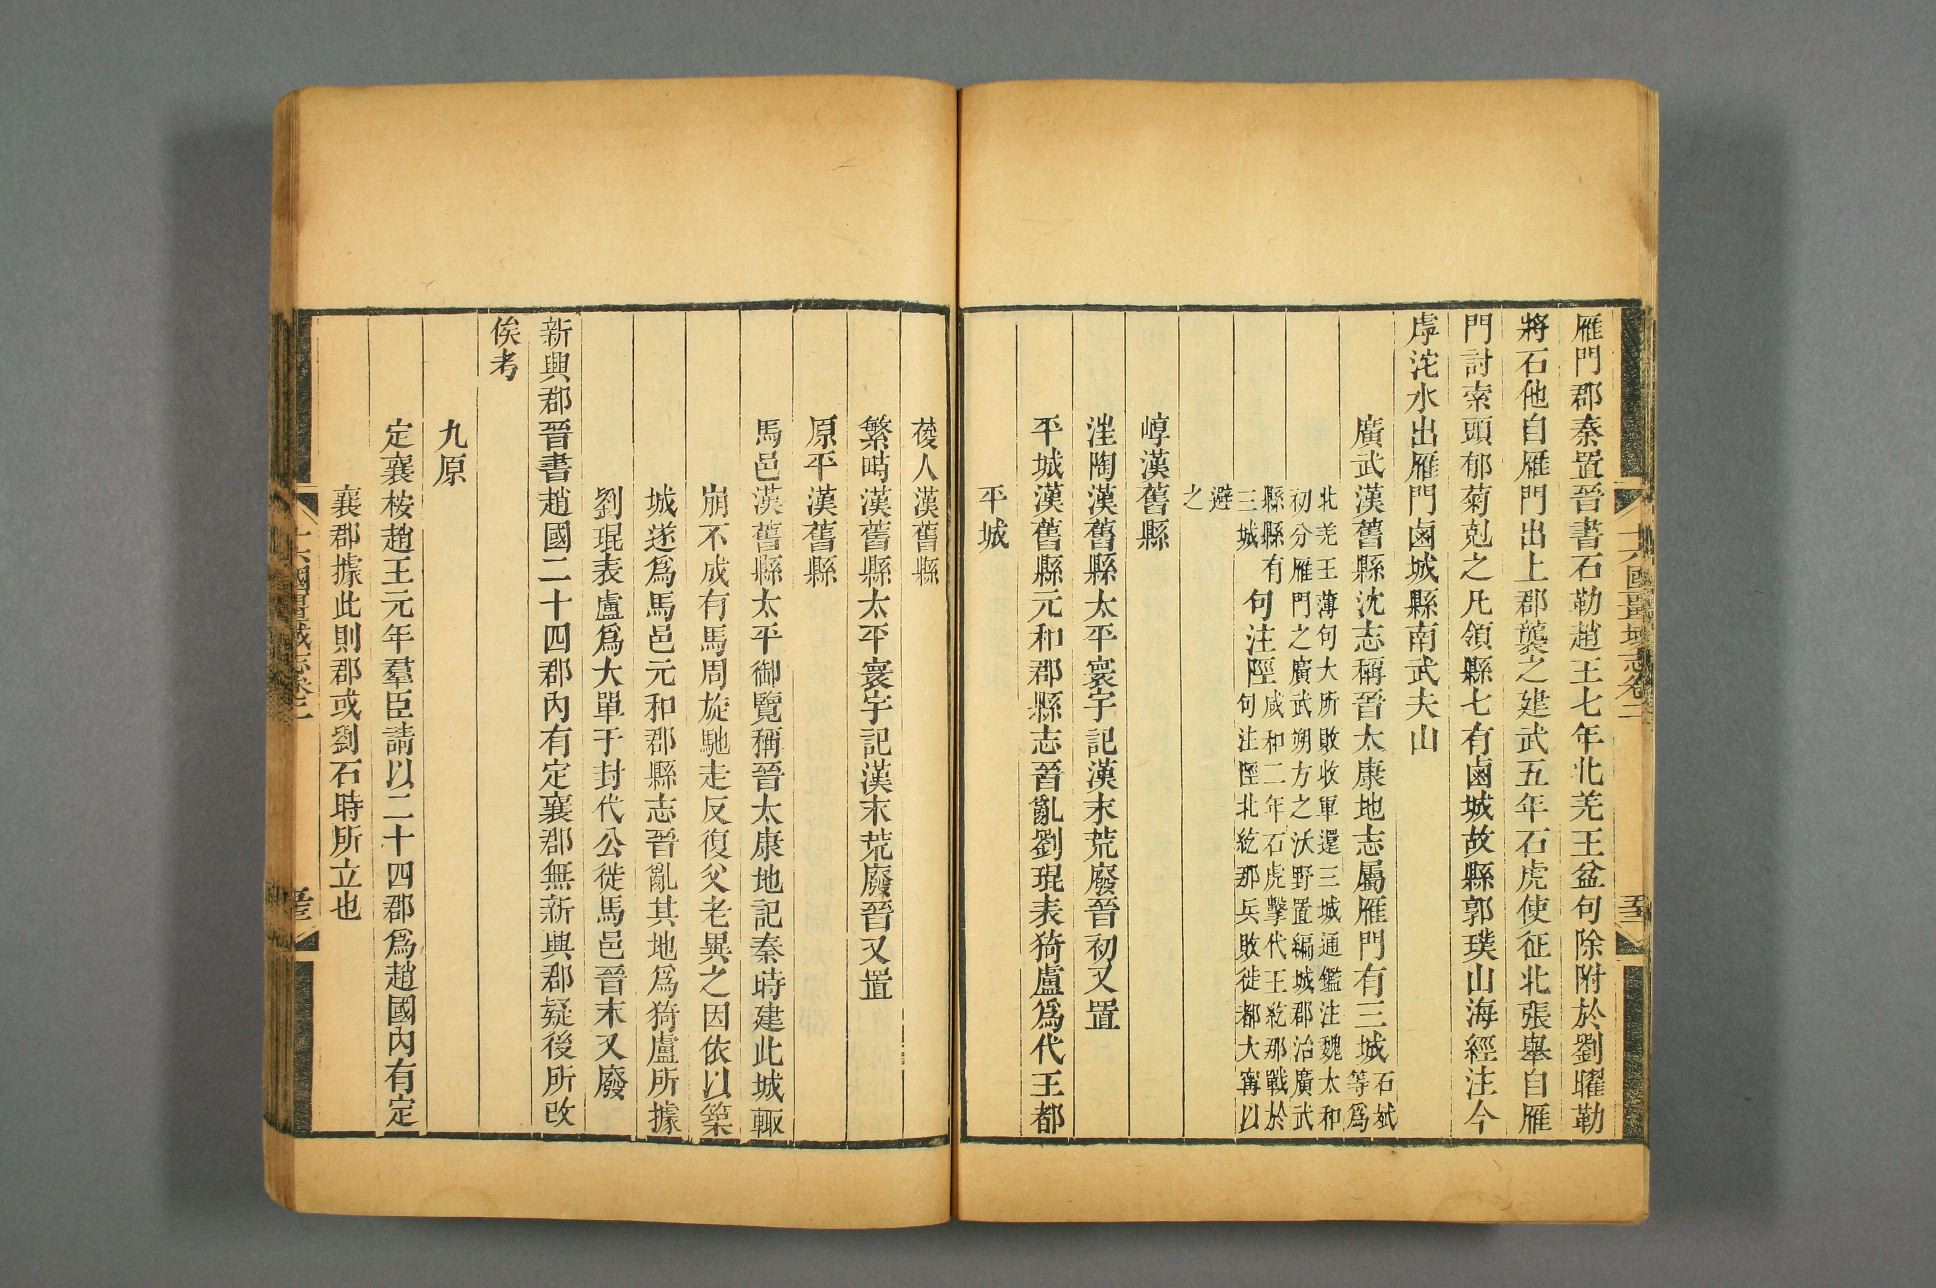 雁門郡秦置晉書石勒趙王七年北羌王盆句除附於劉曜勒
將石他自雁門出上郡襲之建武五年石虎使征北張舉自雁
門討索頭郁菊剋之凡領縣七有鹵城故縣郭璞山海經注今
虖沱水出雁門鹵城縣南武夫山
廣武漢舊縣沈志稱晉太康地志屬雁門有三城石斌
等爲
北羌王薄句大所敗收軍還三城通鑑注魏太和
初分雁門之廣武朔方之沃野置編城郡治廣武
縣縣有
三城
句注陘
咸和二年石虎擊代王紇那戰於
句注陘北紇那兵敗徙都大甯以
避
之
崞漢舊縣
洼陶漢舊縣太平寰宇記漢末荒廢晉初又置
平城漢舊縣元和郡縣志晉亂劉琨表猗盧爲代王都
平城
葰人漢舊縣
繁畤漢舊縣太平寰宇記漢末荒廢晉又置
原平漢舊縣
馬邑漢舊縣太平御覽稱晉太康地記秦時建此城輙
崩不成有馬周旋馳走反復父老異之因依以築
城遂爲馬邑元和郡縣志晉亂其地爲猗盧所據
劉琨表盧爲大單于封代公徙馬邑晉末又廢
新興郡晉書趙國二十四郡內有定襄郡無新興郡疑後所改
俟考
九原
定襄桉趙王元年羣臣請以二十四郡爲趙國內有定
襄郡據此則郡或劉石時所立也
十六國疆域志卷二